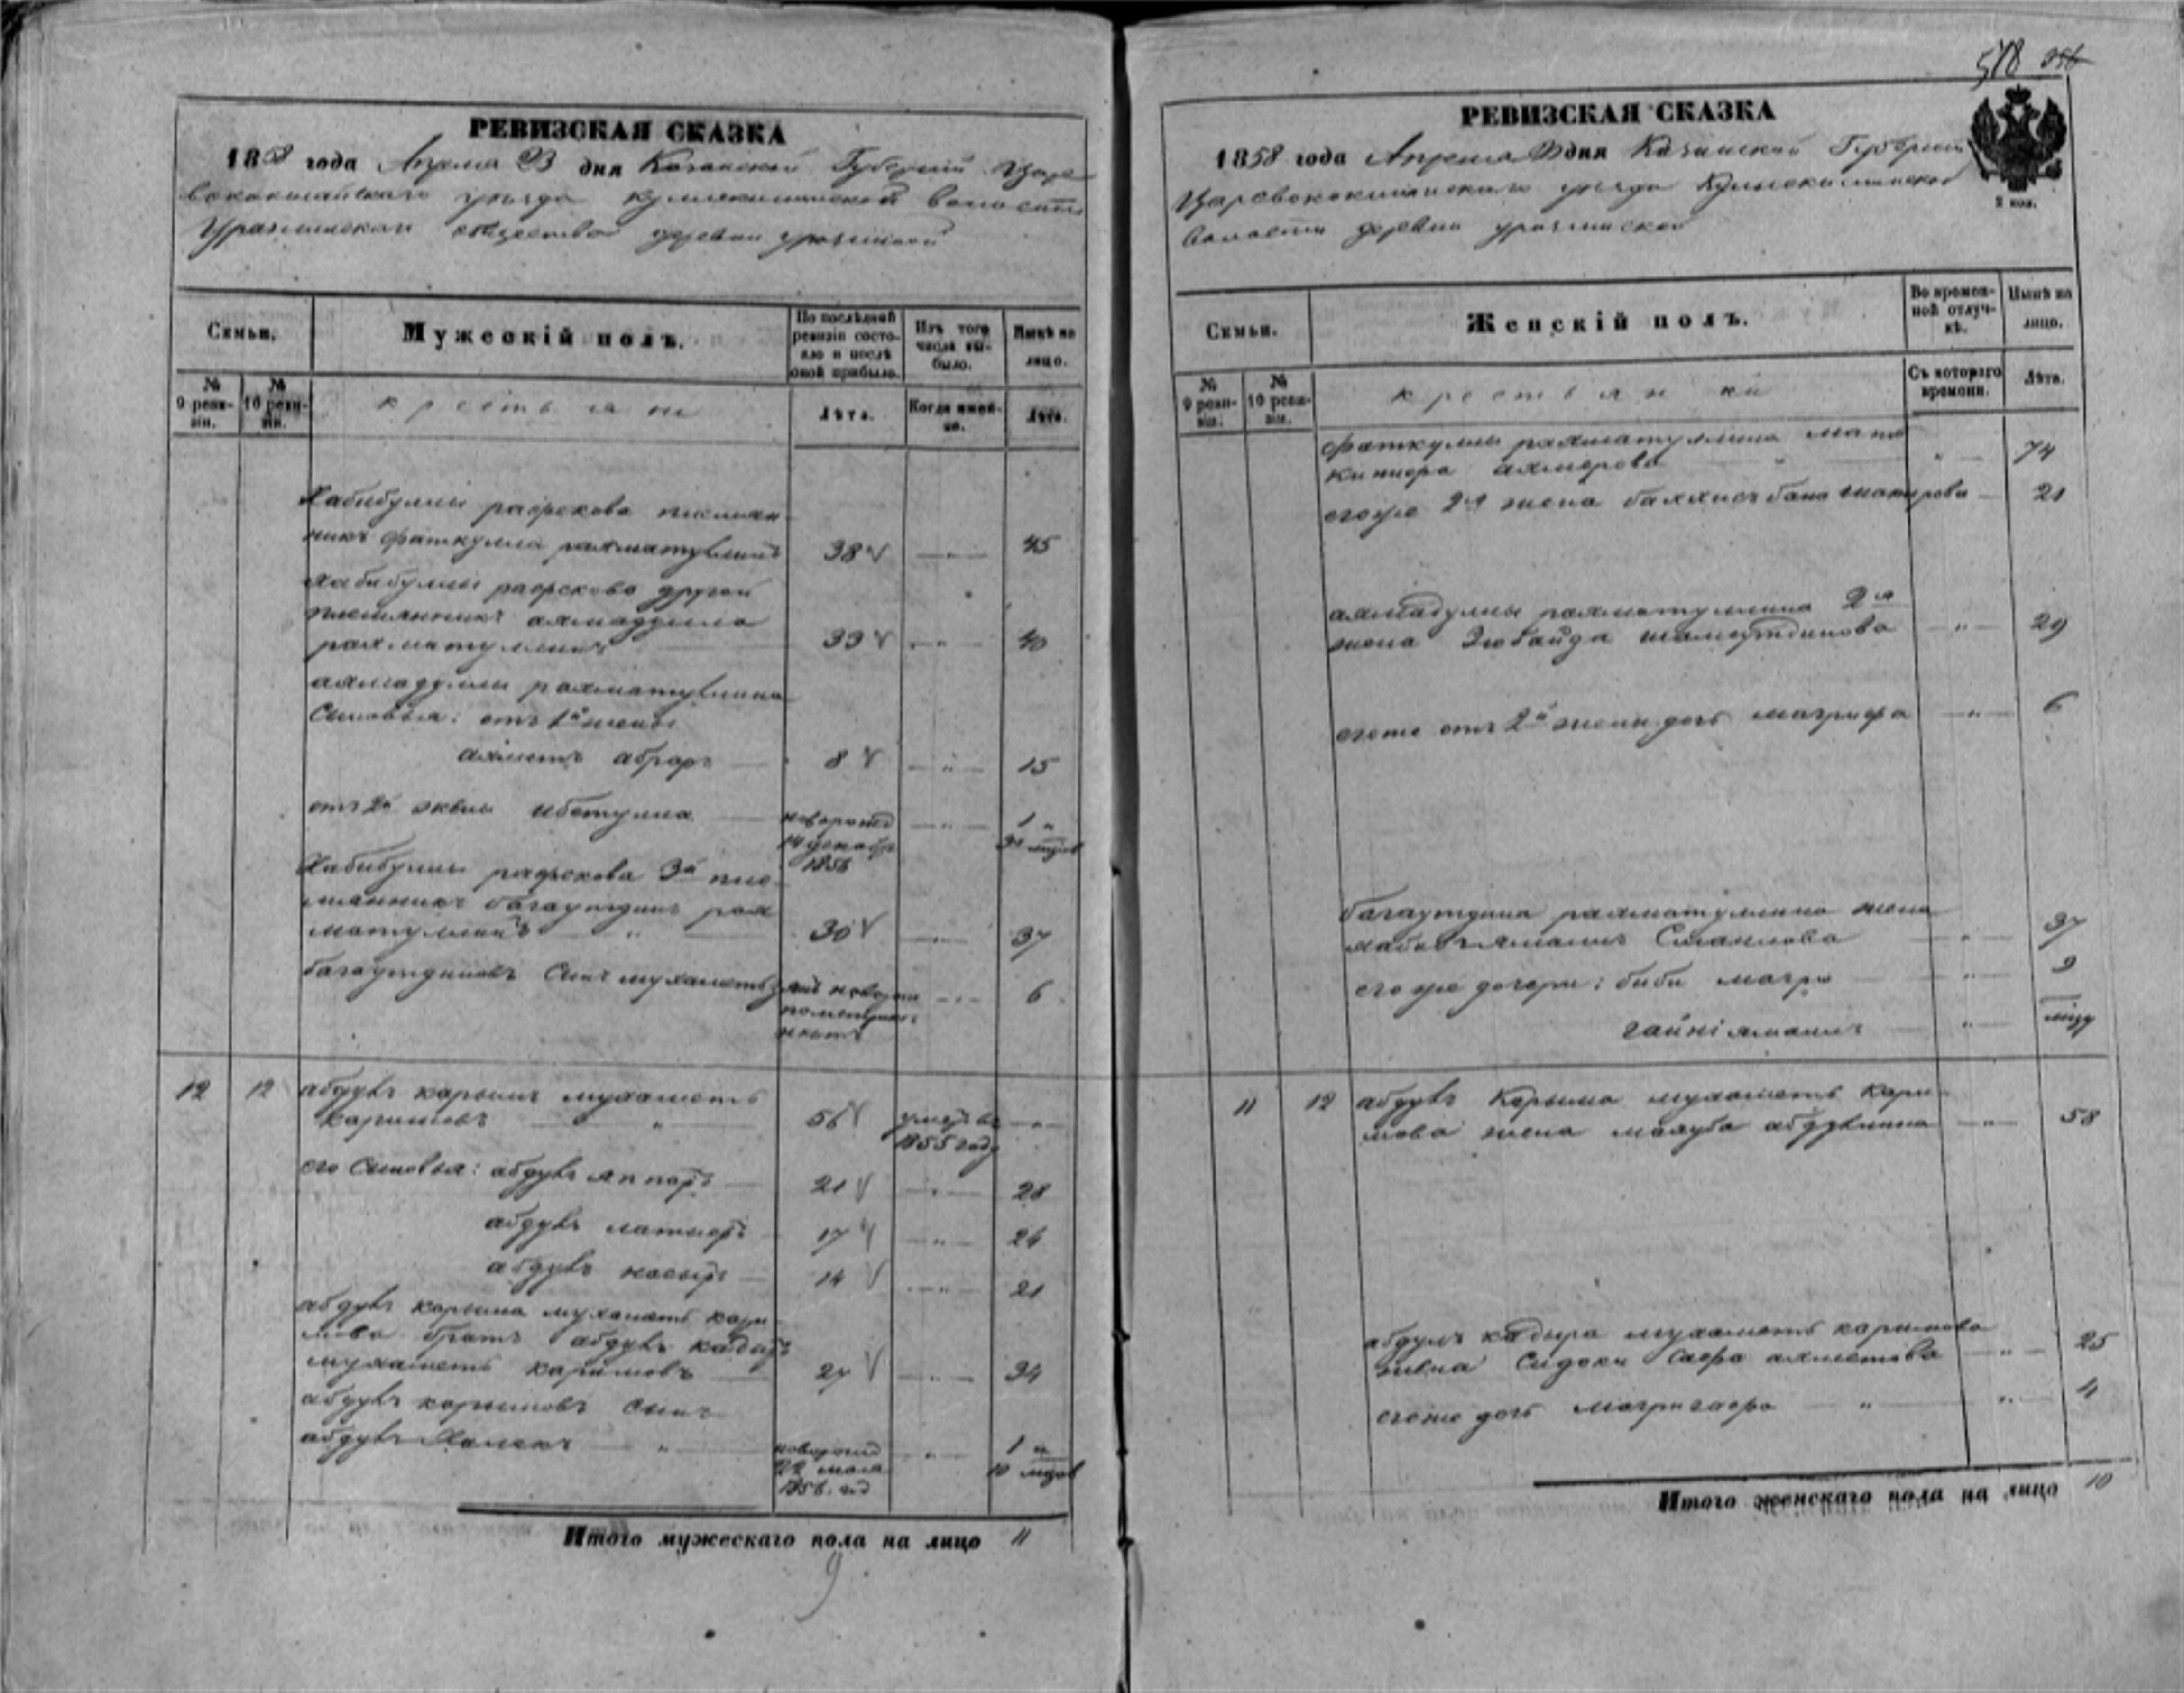 РЕВИЗСКАЯ СКАЗКА
1858 года Апреля 23 дня Казанской Губернии Царе
вококшайскаго уезда Кулле-Киминской волости
Уразлинскаго общества деревни Уразлиной
Семьи.
Мужескій полъ.
По послѣдней ревизіи состояло и послѣ оной прибыло.
Изъ того числа выбыло.
Нынѣ на лицо.
№ 9 ревизіи.
№ 10 ревизіи.
крестьяне
Лѣта.
Когда именно.
Лѣта.
Хабибуллы рафекова племян
никъ фаткулла рахматуллинъ 38 — " — 45
хабибуллы рафекова другой
племянникъ ахмадулла
рахматуллинъ 33 — " — 40
ахмадуллы рахматуллина
Сыновья: отъ 1й жены
ахметъ абраръ 8 — " — 15
отъ 2й жены ибетулла новорожд — " — 1 и
14 декабр
1856
Хабибуллы рафекова 3й пле
мянникъ багаутдинъ рах
матуллинъ 30 — " — 37
багаутдиновъ Сынъ мухаметь — " — 6
12 12 абдулъ карымъ мухаметь
каримовъ 56 умеръ въ — " —
1855 году
его Сыновья: абдулъ яппаръ 21 — " — 28
абдулъ латыфъ 17 — " — 24
абдулъ насыръ 14 — " — 21
абдулъ карыма мухаметь кари
мова братъ абдулъ кадыръ
мухаметь каримовъ 27 — " — 34
абдулъ карымовъ Сынъ
абдулъ Халекъ " новорожд — " — 1 и
22 мая 10 мцов
1856 год
Итого мужескаго пола на лицо 11
9
578
РЕВИЗСКАЯ СКАЗКА
1858 года Апреля 23 дня Казанской Губернии
Царевококшайскаго уезда Кулле-Киминской
волости деревни Уразлинской
2 коп.
Семьи.
Женскій полъ.
Во временной отлучкѣ.
Нынѣ на лицо.
№ 9 ревизіи.
№ 10 ревизіи.
крестьянки
Съ котораго времени.
Лѣта.
фаткуллы рахматуллина мать
ахмерова — " — 74
егоже 2я жена бану шакирова — 21
ахмадуллы рахматуллина 2я
жена Зюбайда шамсутдинова — " — 29
егоже отъ 2й жены дочь магруфа — " — 6
багаутдина рахматуллина жена
Смаилова — " — 37
его же дочери: биби магра — " — 9
гайниямалъ — " —
11 12 абдулъ Карыма мухаметь Кари
мова жена махуба абдулина — " — 58
абдулъ кадыра мухаметь каримова
жена Сафа ахметова — " — 25
егоже дочь — " — 4
Итого женскаго пола на лицо 10